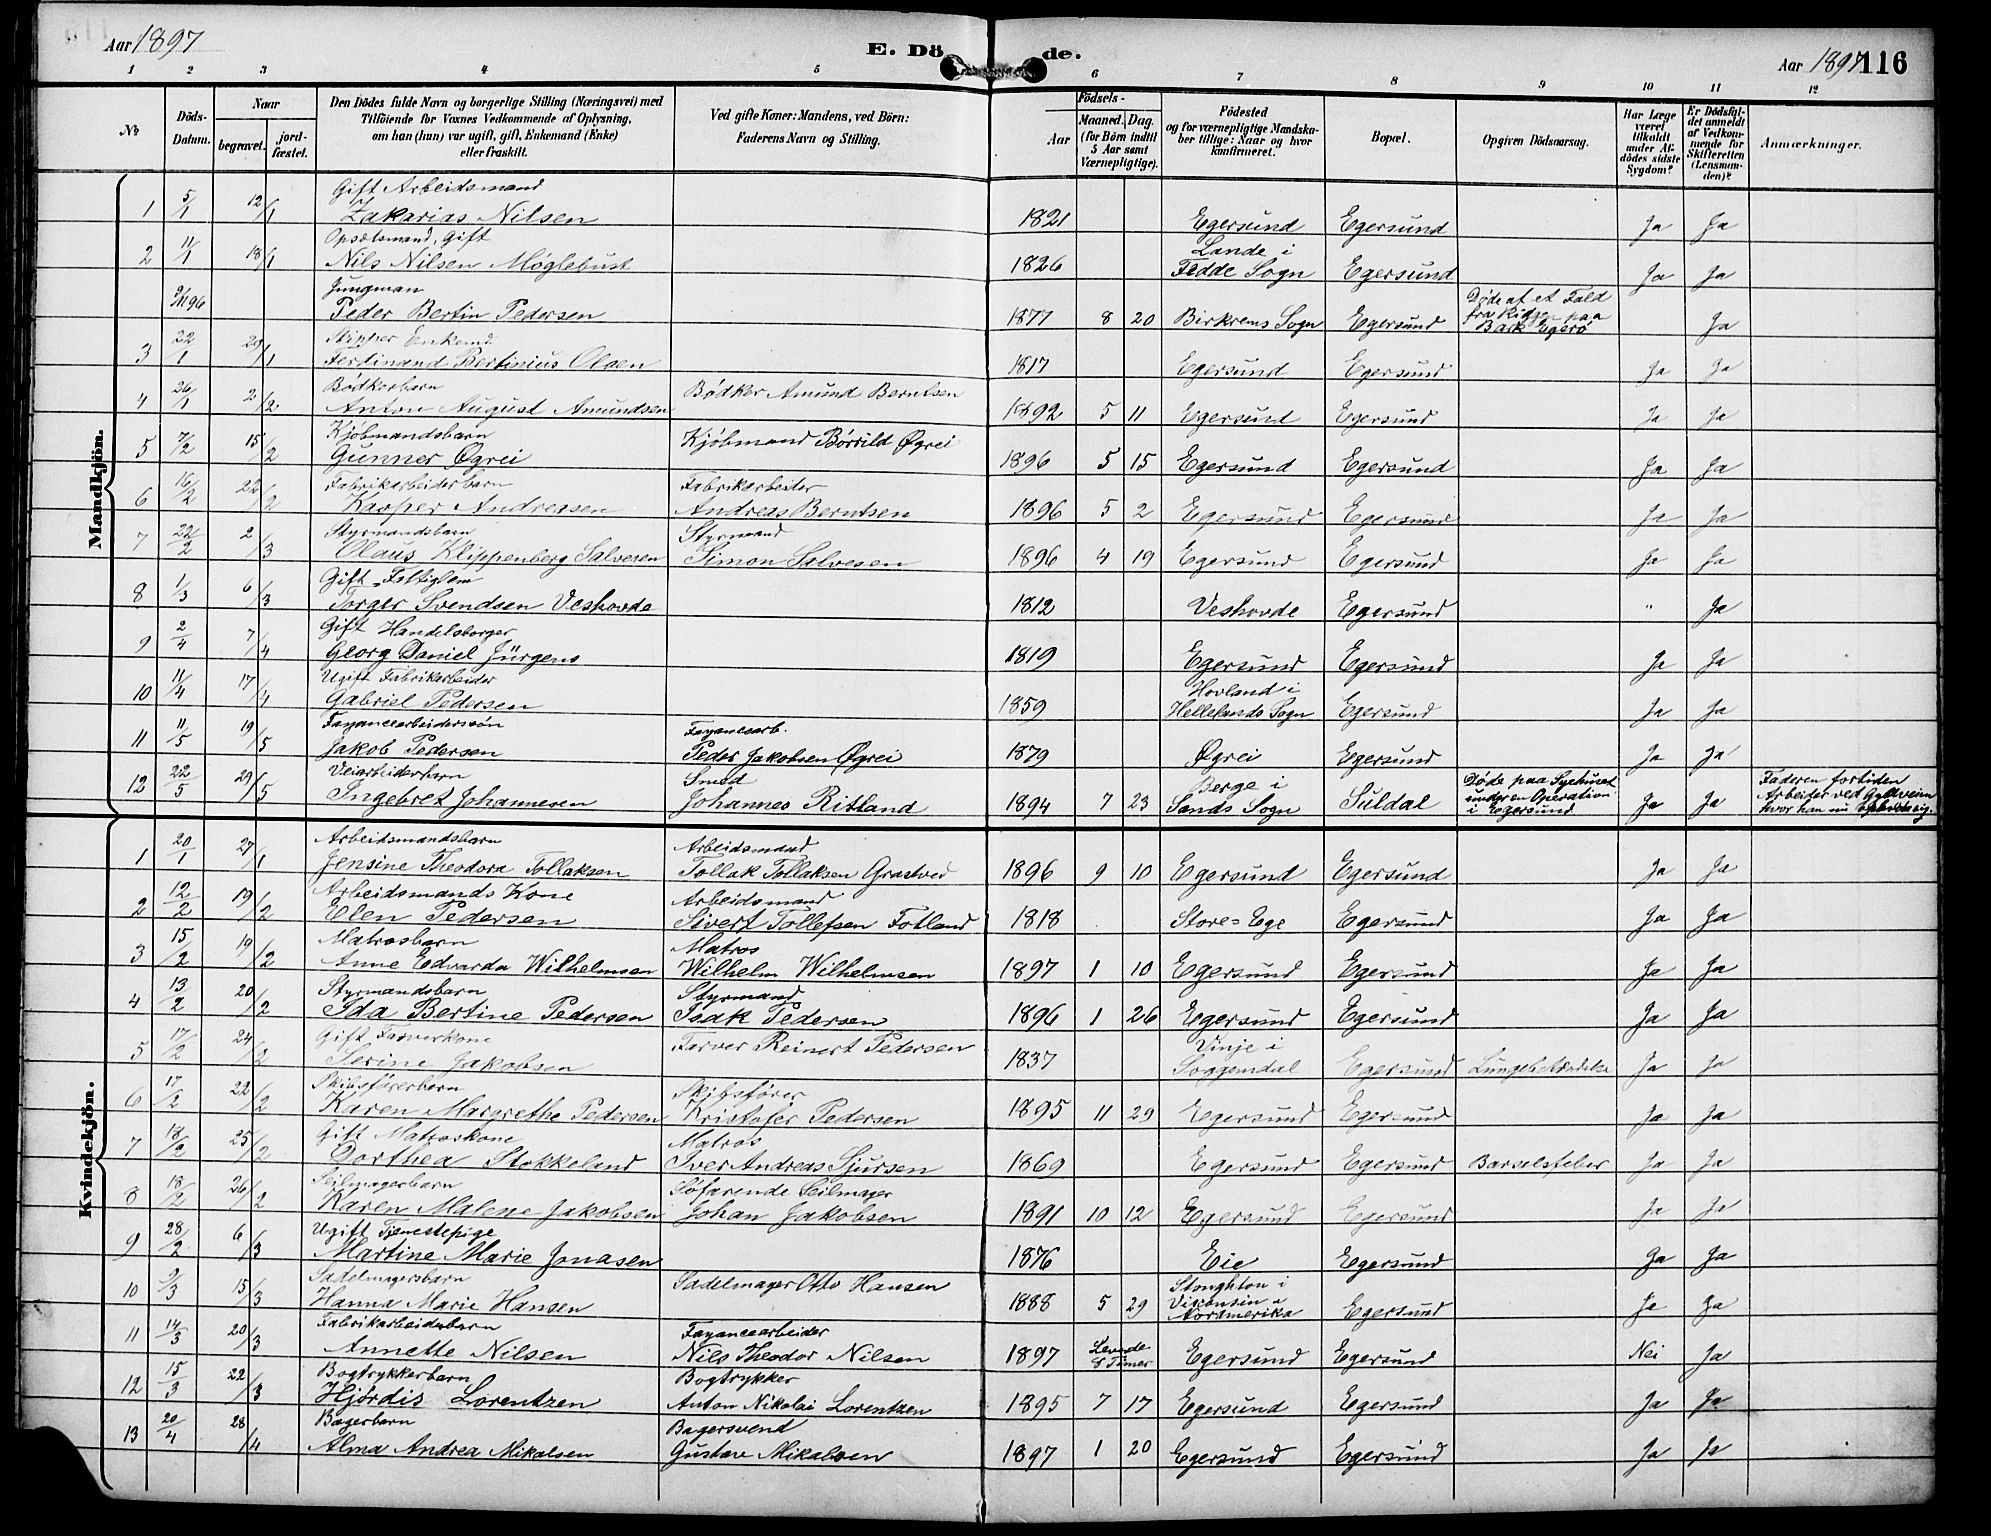 Aar 1897 E. Dö de. Aar 1897 116
1 2 3 4 5 6 7 8 9 10 11 12
No
Döds-Datum.
Naar
begravet. jordfæstet.
Den Dödes fulde Navn og borgerlige Stilling (Næringsvei) med
Tilföiende for Voxnes Vedkommende af Oplysning,
om han (hun) var ugift, gift, Enkemand (Enke)
eller fraskilt.
Ved gifte Koner: Mandens, ved Börn:
Faderens Navn og Stilling.
Födsels-
Aar Maaned. Dag.
(for Börn indtil
5 Aar samt
Værnepligtige).
Födested
og for værnepligtige Mandskaber tillige: Naar og hvor
konfirmeret.
Bopæl.
Opgiven Dödsaarsag.
Har Læge
været
tilkaldt
under Afdödes sidste
Sygdom?
Er Dödsfaldet anmeldt
af Vedkommende for
Skifteretten
(Lensmanden)?
Anmærkninger.
Mandkjön.
Gift Arbeidsmand
1 5/1 12/1 Zakarias Nilsen 1821 Egersund Egersund Ja Ja
Opsætsmand, Gift Lande i
2 11/1 18/1 Nils Nilsen Møglebust 1826 Fedde Sogn Egersund Ja Ja
Jungman Døde af et Fald
96 Peder Bertin Pedersen 1877 8 20 Birkrems Sogn Egersund fra Riggen paa Ja
Bark Egerø
Skipper Enkemd
3 22/1 29/1 Ferdinand Bertinius Olsen 1817 Egersund Egersund Ja Ja
Bødkerbarn Bødker Amund Berntsen
4 26/1 2/2 Anton August Amundsen 1892 5 11 Egersund Egersund Ja Ja
Kjøbmandsbarn Kjøbmand Børrild Øgrei
5 7/2 15/2 Gunner Øgrei 1896 5 15 Egersund Egersund Ja Ja
Fabrikarbeiderbarn Fabrikarbeider
6 16/2 22/2 Kasper Andreasen Andreas Berntsen 1896 5 2 Egersund Egersund Ja Ja
Styrmandsbarn Styrmand
7 22/2 2/3 Olaus Klippenberg Salvesen Simon Salvesen 1896 4 19 Egersund Egersund Ja Ja
Gift Fattiglem
8 1/3 6/3 Torger Svendsen Veshovde 1812 Veshovde Egersund " Ja
Gift Handelsborger
9 2/4 7/4 Georg Daniel Jürgens 1819 Egersund Egersund Ja Ja
Ugift Fabrikarbeider Hovland i
10 11/4 17/4 Gabriel Pedersen 1859 Hellelands Sogn Egersund Ja Ja
Fayancearbeidersøn Fayancearb.
11 11/5 19/5 Jakob Pedersen Peder Jakobsen Øgrei 1879 Øgrei Egersund Ja Ja
Veiarbeiderbarn Smed Berge i Døde paa Sygehuset Faderen fortiden
12 22/5 29/5 Ingebret Johannesen Johannes Ritland 1894 7 23 Sands Sogn Suldal under en Operation Ja Ja Arbeider ved
i Egersund hvor han nu opholder sig.
Kvindekjön.
Arbeidsmandsbarn Arbeidsmand
1 20/1 27/1 Jensine Theodora Tollaksen Tollak Tollaksen Grastved 1896 9 10 Egersund Egersund Ja Ja
Arbeidsmands Kone Arbeidsmand
2 12/2 19/2 Elen Pedersen Sivert Tollefsen Fotland 1818 Store-Ege Egersund Ja Ja
Matrosbarn Matros
3 15/2 19/2 Anne Edvarda Wilhelmsen Wilhelm Wilhelmsen 1897 1 10 Egersund Egersund Ja Ja
Styrmandsbarn Styrmand
4 13/2 20/2 Ida Bertine Pedersen Isak Pedersen 1896 1 26 Egersund Egersund Ja Ja
Gift Farverkone Farver Reinert Pedersen Vinje i
5 17/2 24/2 Serine Jakobsen 1837 Soggendal Egersund Lungebetændelse Ja Ja
Skibsførerbarn Skibsfører
6 17/2 22/2 Karen Margrethe Pedersen Kristofer Pedersen 1895 11 29 Egersund Egersund Ja Ja
Gift Matroskone Matros
7 18/2 25/2 Dorthea Stokkeland Iver Andreas Sjursen 1869 Egersund Egersund Barselsfeber Ja Ja
Seilmagerbarn Søfarende Seilmager
8 18/2 26/2 Karen Malene Jakobsen Johan Jakobsen 1891 10 12 Egersund Egersund Ja Ja
Ugift Tjenestepige
9 28/2 6/3 Martine Marie Jonasen 1876 Eie Egersund Ja Ja
Sadelmagersbarn Sadelmager Otto Hansen Stoughton i
10 9/3 15/3 Hanna Marie Hansen 1888 5 29 Visconsin Egersund Ja Ja
Nordmerika
Fabrikarbeiderbarn Fayancearbeider Levede
11 14/3 20/3 Annette Nilsen Nils Theodor Nilsen 1897 8 Timer Egersund Egersund Nei Ja
Bogtrykkerbarn Bogtrykker
12 15/3 22/3 Hjørdis Lorentzen Anton Nikolai Lorentzen 1895 7 17 Egersund Egersund Ja Ja
Bagerbarn Bagersvend
13 20/4 28/4 Alma Andrea Mikalsen Gustav Mikalsen 1897 1 20 Egersund Egersund Ja Ja